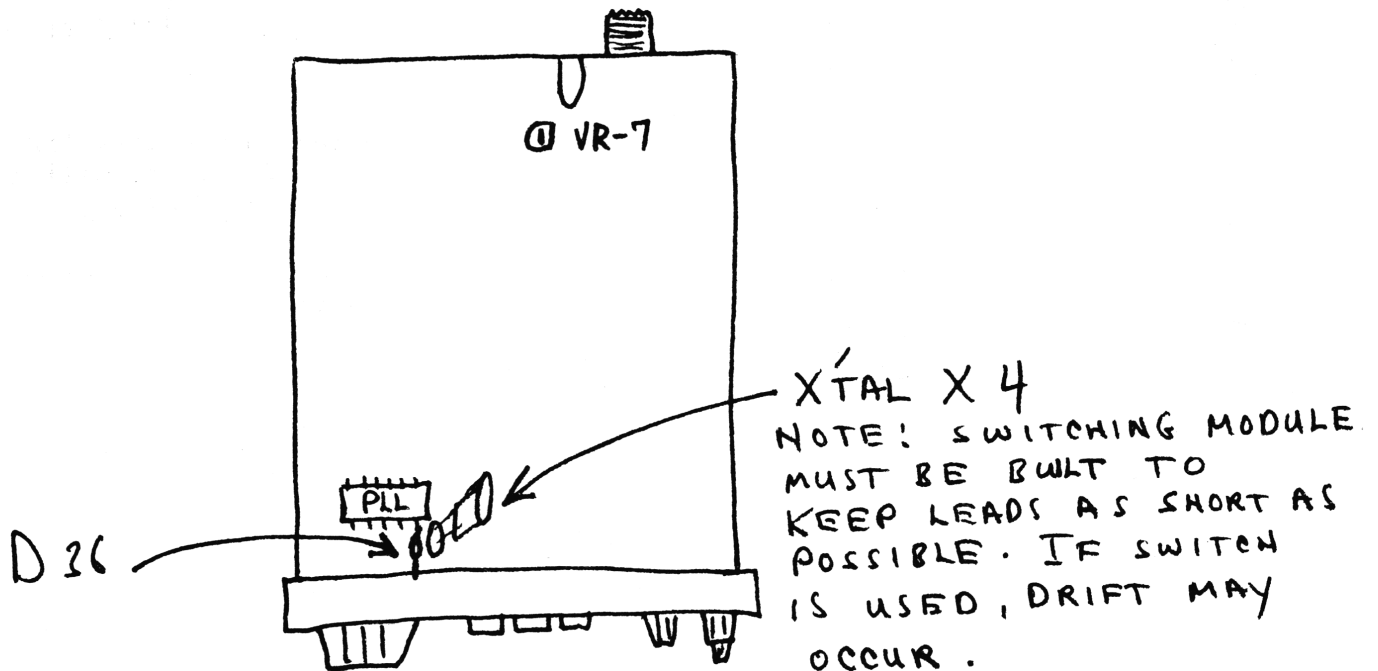 VR-7
X'TAL X 4
NOTE: SWITCHING MODULE
MUST BE BUILT TO
KEEP LEADS AS SHORT AS
POSSIBLE. IF SWITCH
IS USED, DRIFT MAY
OCCUR.
PLL
D 36